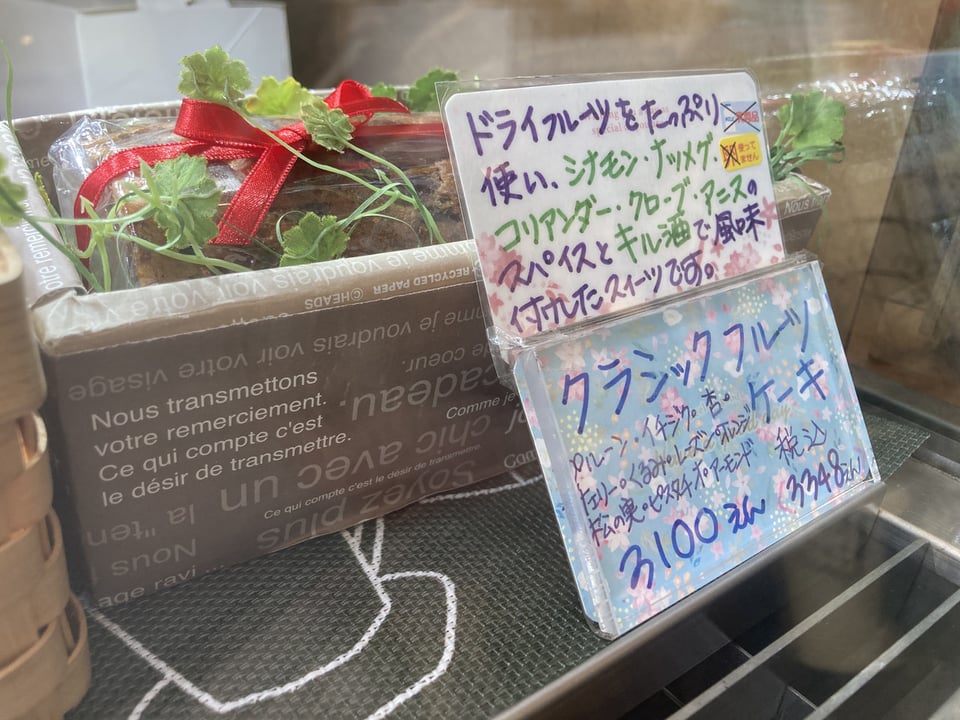 ドライフルーツをたっぷり
使い、シナモン・ナツメグ・
コリアンダー・クローブ・アニスの
スパイスとキルシュ酒で風味
付けしたスイーツです。
使って
ません
クラシックフルーツ
ケーキ
プルーン・イチジク・杏・
チェリー・くるみ・レーズン・オレンジ
松の実・ピスタチオ・アーモンド
税込
3100えん
3348えん
Nous transmettons
votre remerciement.
Ce qui compte c'est
le désir de transmettre.
Ce qui compte c'est le désir de transmettre.
Comme je
me je voudrais voir votre visage
de coeur.
cadeau.
chic avec un
Soyez plus
la "ten
Nous
age ravi ...
RECYCLED PAPER ©HEADS
je voudrais voir votre
Nous rem